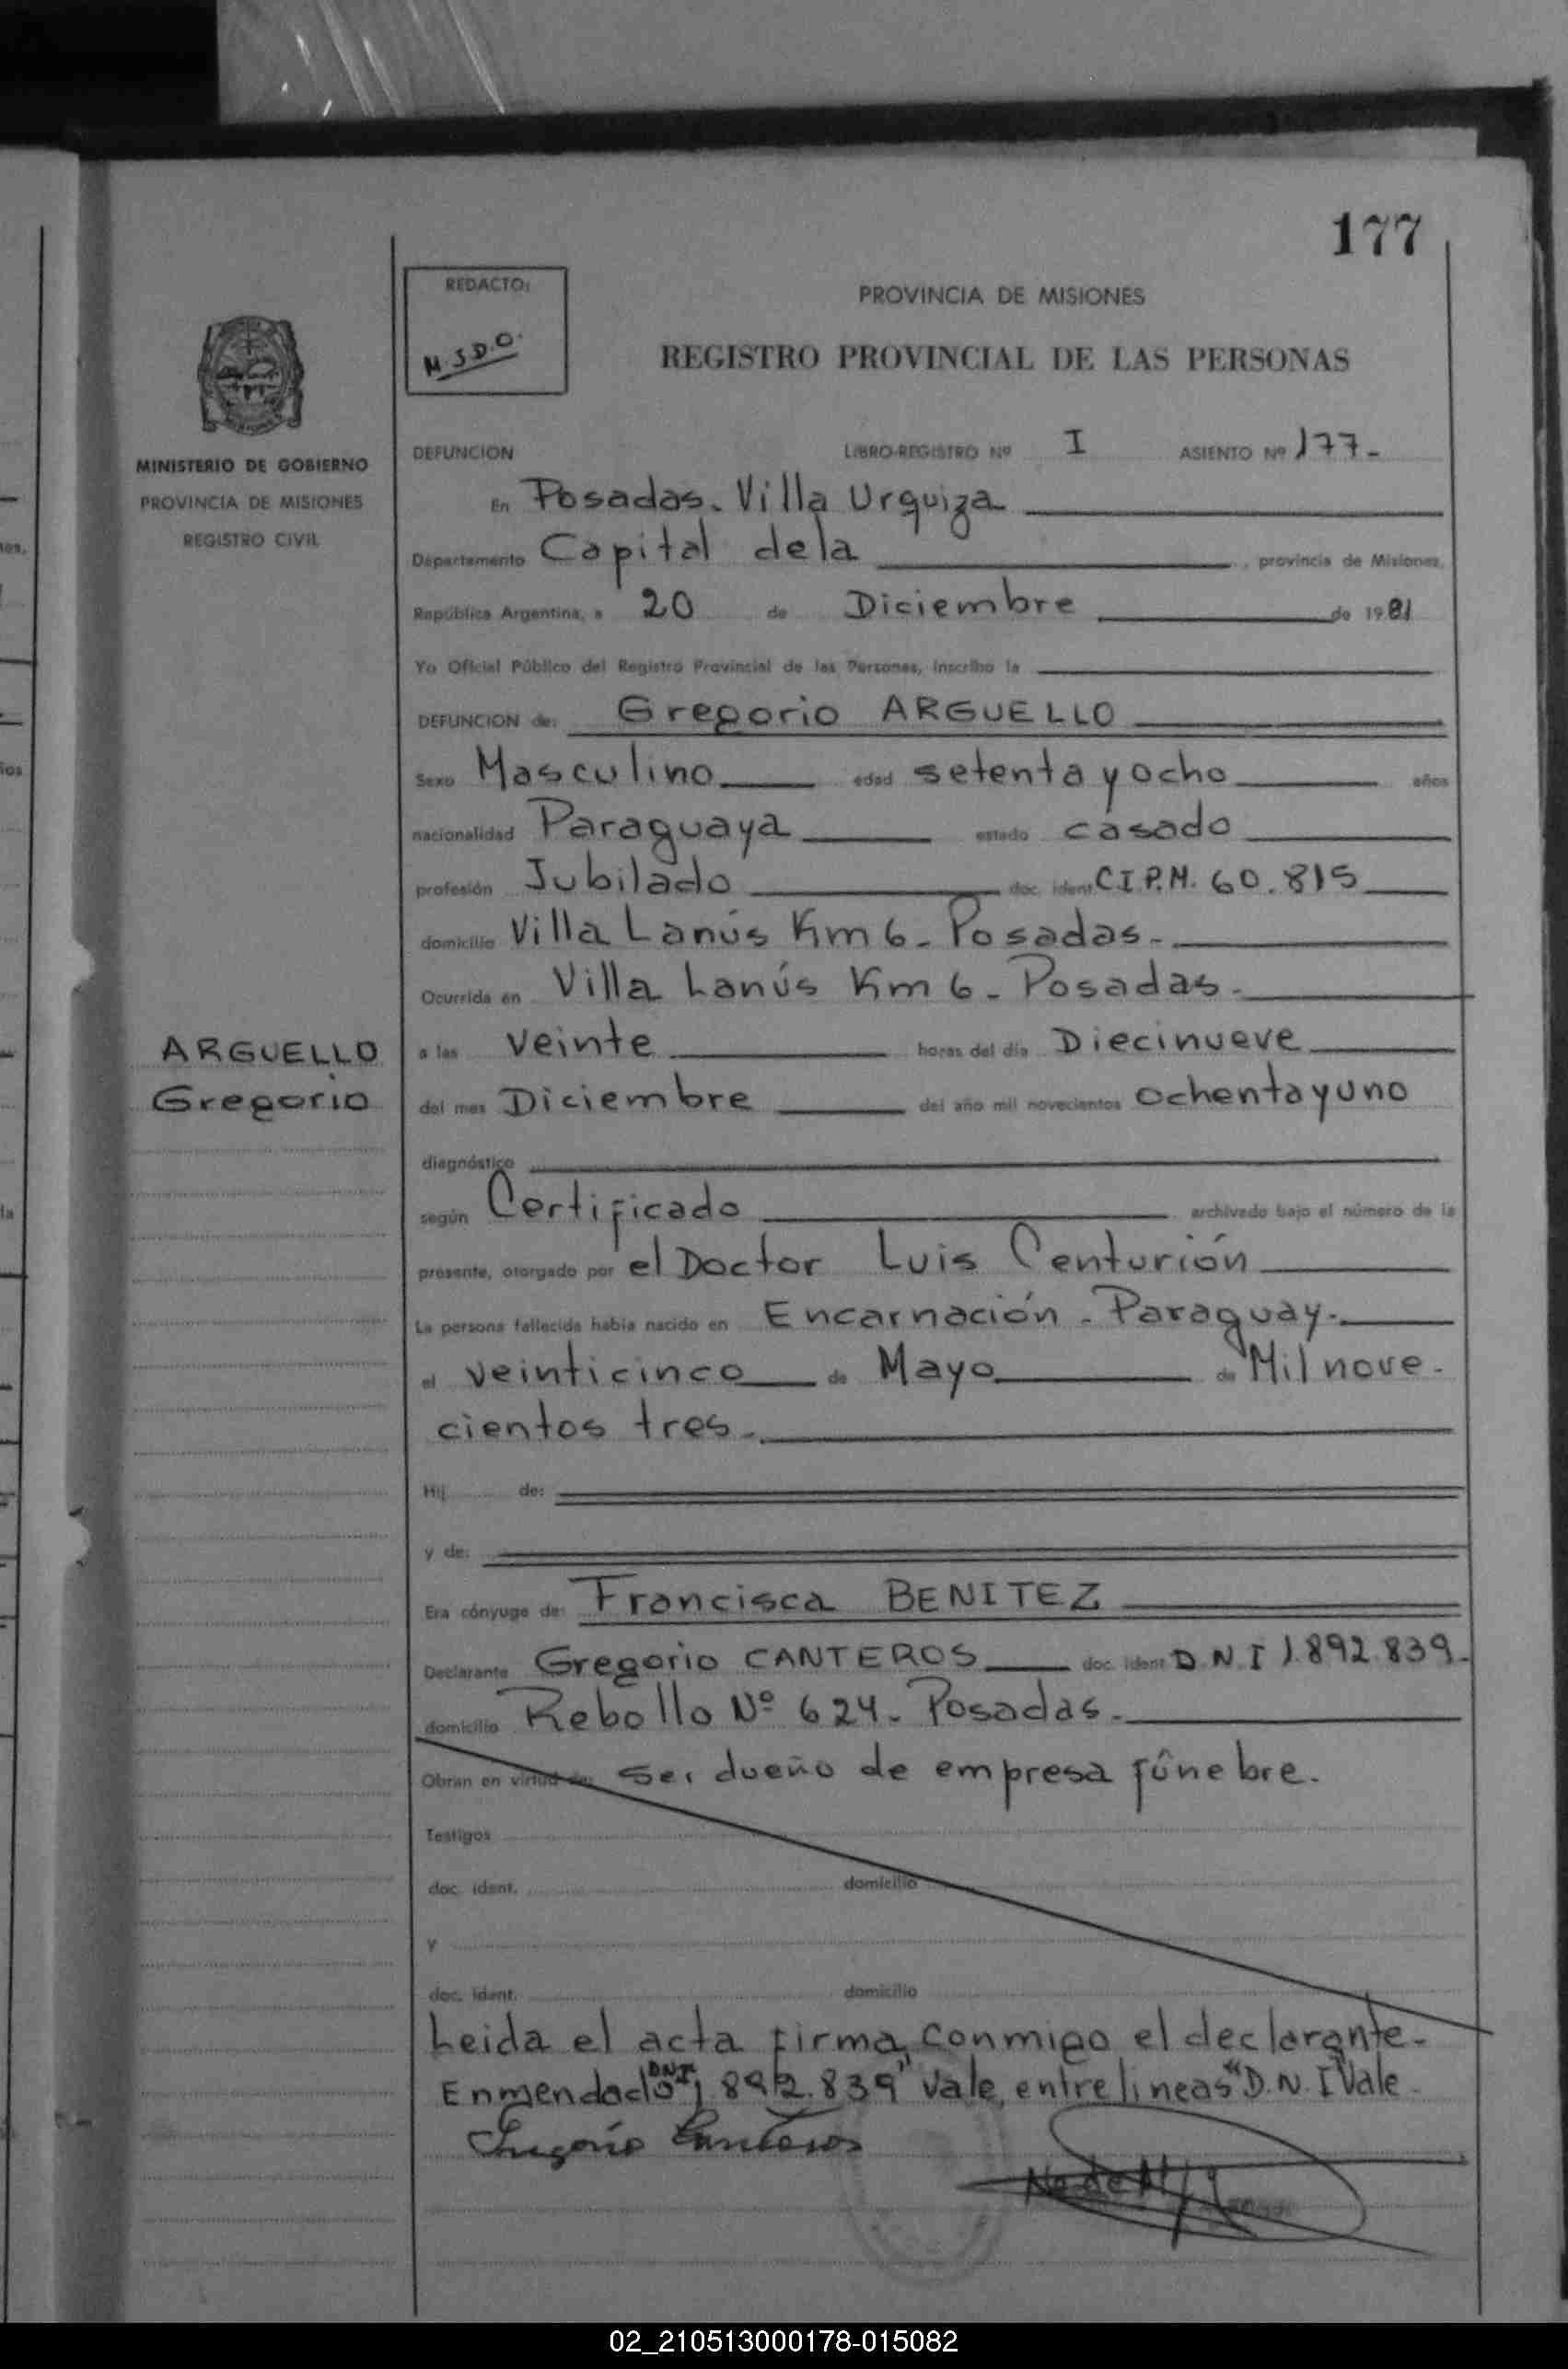 177
REDACTO:
M.S.D.O.
PROVINCIA DE MISIONES
REGISTRO PROVINCIAL DE LAS PERSONAS
MINISTERIO DE GOBIERNO
PROVINCIA DE MISIONES
REGISTRO CIVIL
DEFUNCION LIBRO-REGISTRO Nº I ASIENTO Nº 177-
En Posadas. Villa Urquiza
Departamento Capital dela , provincia de Misiones,
República Argentina, a 20 de Diciembre de 1981
Yo Oficial Público del Registro Provincial de las Personas, inscribo la
DEFUNCION de: Gregorio ARGUELLO
Sexo Masculino edad setenta y ocho años
nacionalidad Paraguaya estado casado
profesión Jubilado doc. ident. C I.P.M. 60.815
domicilio Villa Lanús Km 6- Posadas-
Ocurrida en Villa Lanús Km 6- Posadas-
ARGUELLO
Gregorio
a las veinte horas del día Diecinueve
del mes Diciembre del año mil novecientos ochentayuno
diagnóstico
según Certificado archivado bajo el número de la
presente, otorgado por el Doctor Luis Centurión
La persona fallecida había nacido en Encarnación - Paraguay-
el veinticinco de Mayo de Mil nove-
cientos tres-
Hij de:
y de:
Era cónyuge de: Francisca BENITEZ
Declarante Gregorio CANTEROS doc. ident. D.N.I 1.892.839-
domicilio Rebollo Nº 624- Posadas-
Obran en virtud de: ser dueño de empresa fúnebre.
Testigos
doc. ident. domicilio
y
doc. ident. domicilio
Leida el acta firma conmigo el declarante-
Enmendado "DNI 1 892.839" vale, entrelineas "D.N.I" Vale-
Gregorio Canteros
02_210513000178-015082